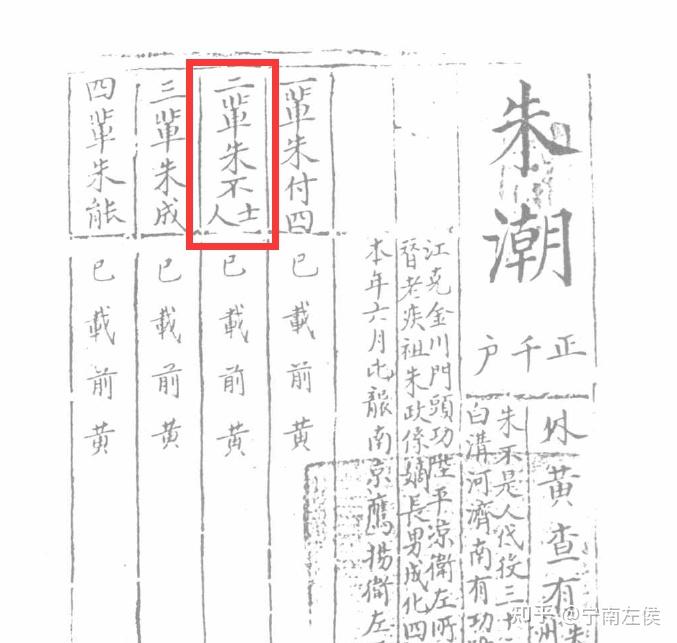 朱潮
正千户
外黄查有
朱不是人代役三十
白溝河濟南有功
江克金川門頭功陞平凉衛左所
替老疾祖朱政係嫡長男成化四
本年六月 南京鷹揚衛左
一輩朱付四
已載前黄
二輩朱不士人
已載前黄
三輩朱成
已載前黄
四輩朱能
已載前黄
知乎 @宁南左侯